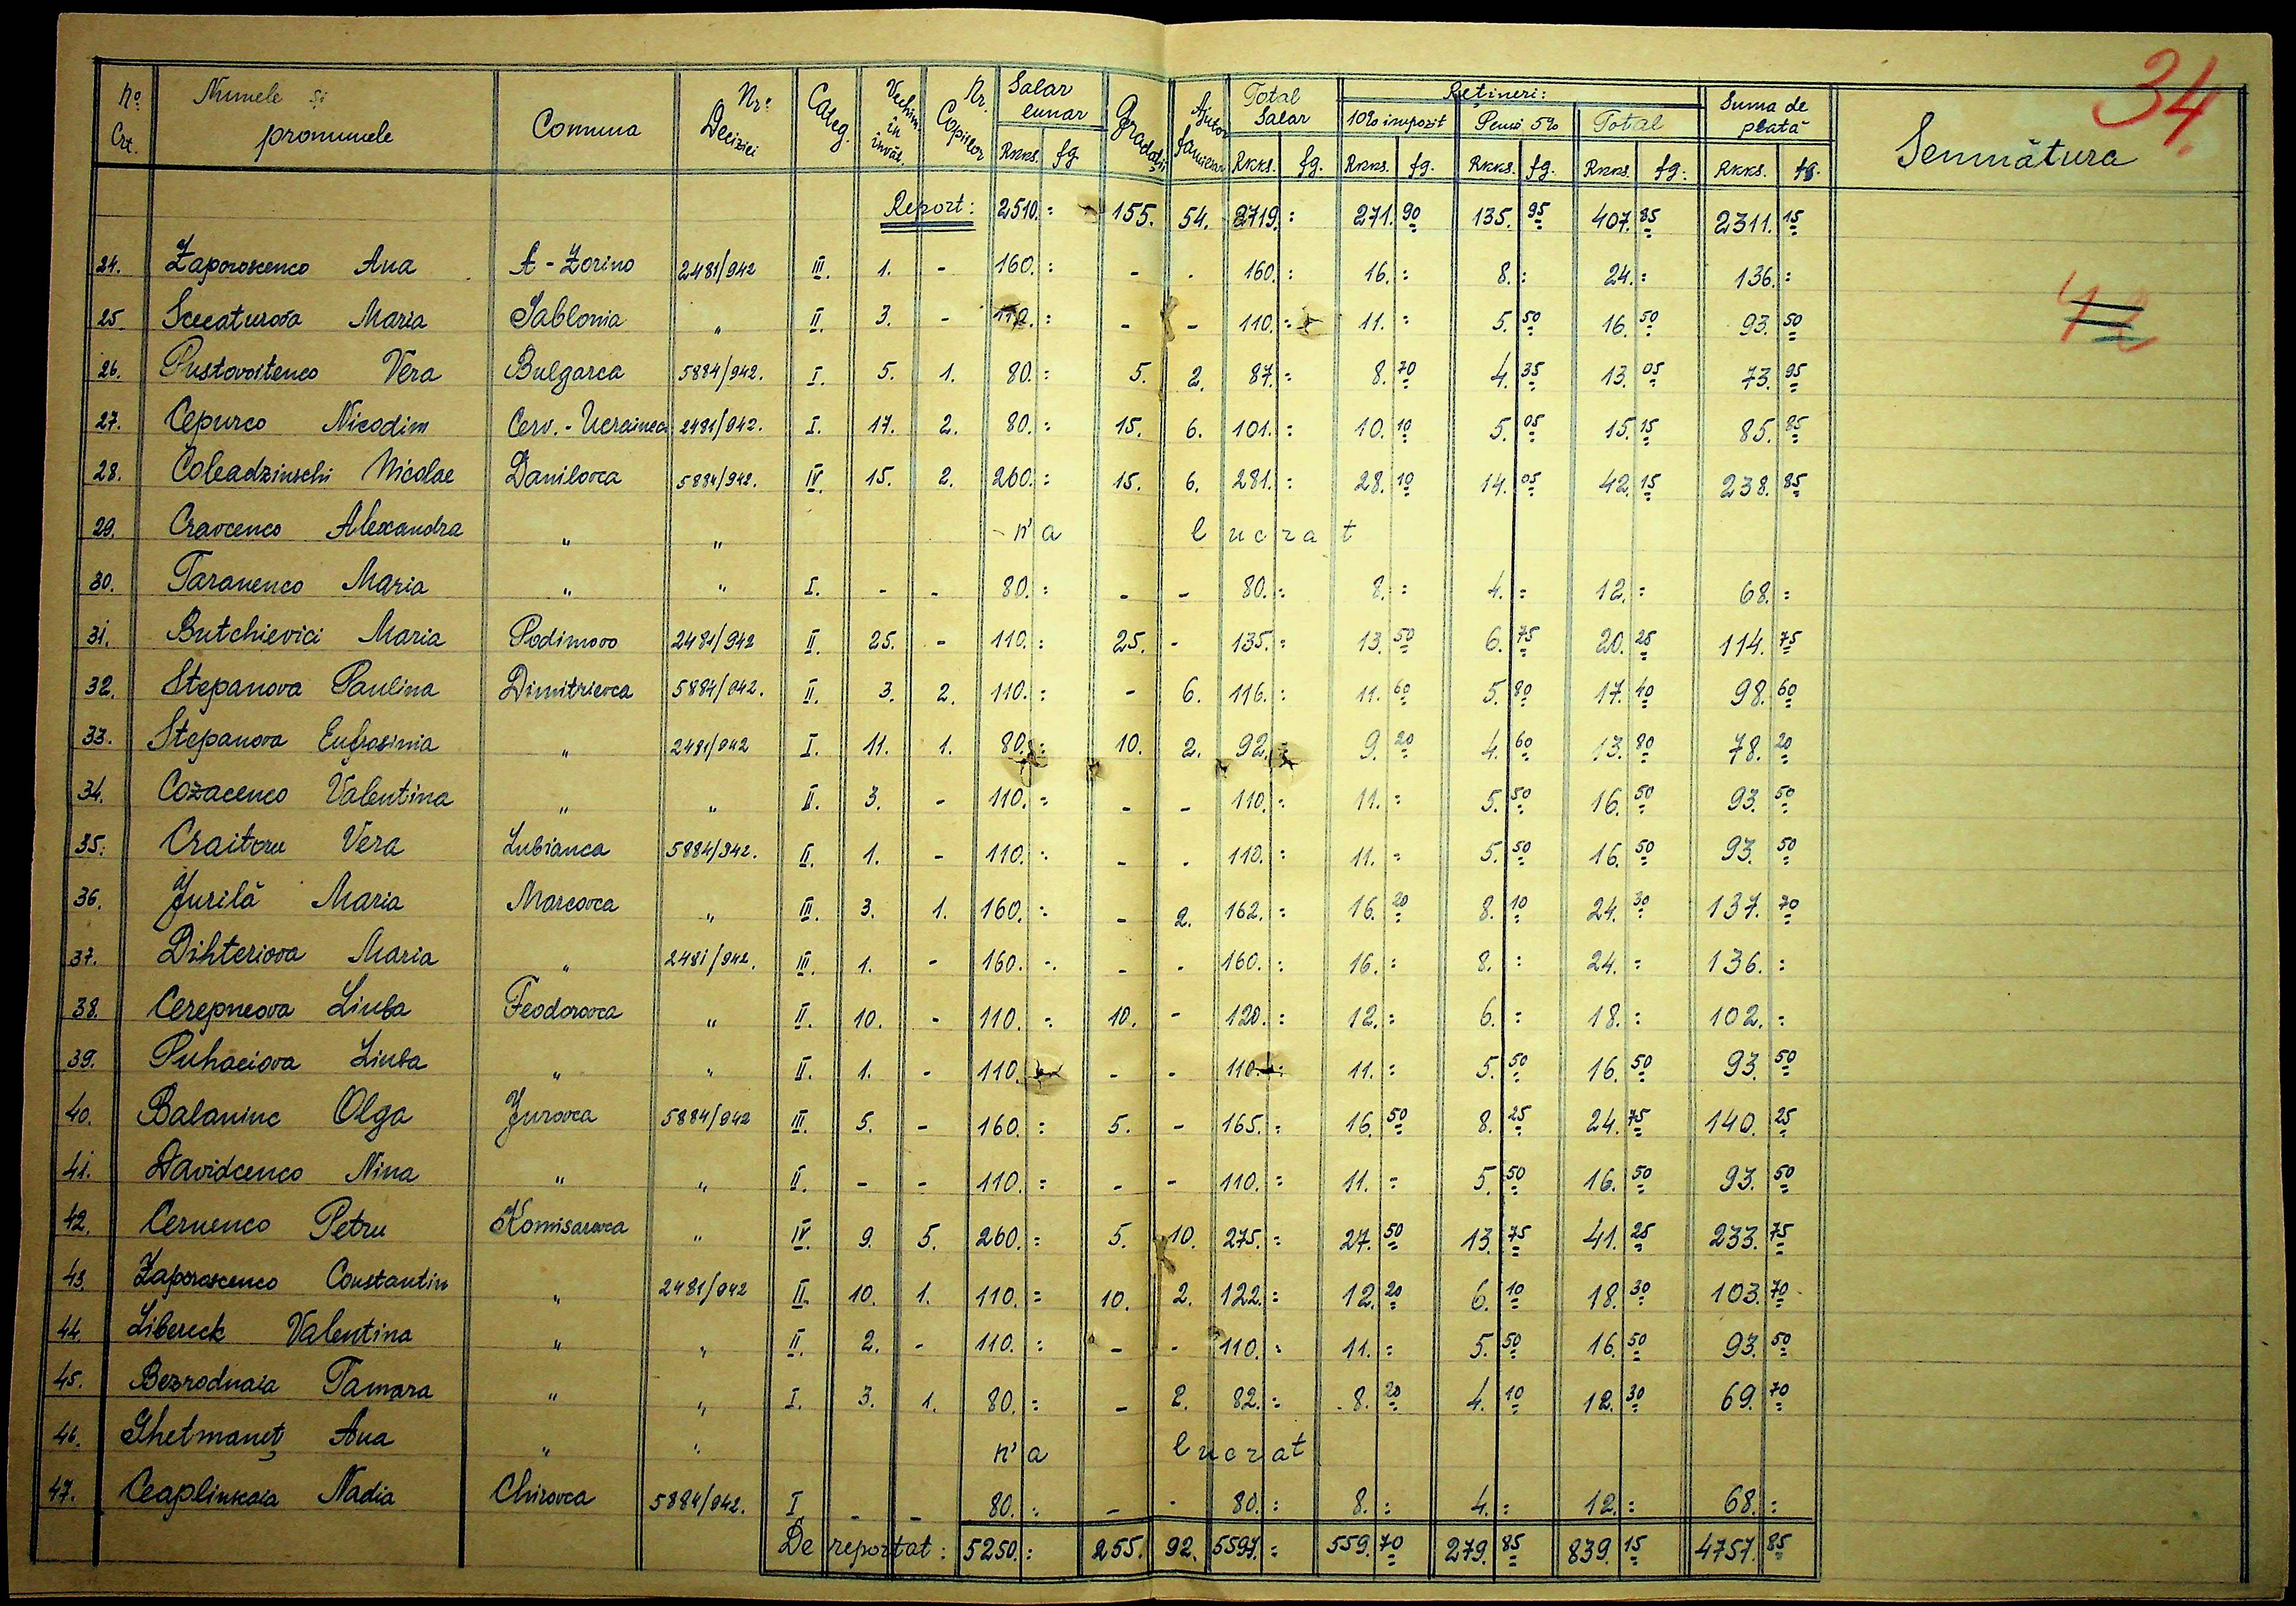 34.
Nº Crt. Numele și pronumele Comuna Nr. Deciziei Categ. Vechim. în învăț. Nr. Copiilor Salar lunar Gradații Ajutor familiar Total Salar Rețineri: Suma de plată Semnătura
10% impozit Pensi 5% Total
Rkks. fg. Rkks. fg. Rkks. fg. Rkks. fg. Rkks. fg. Rkks. fg.
Report: 2510.= 155. 54. 2719.: 271.90 135.95 407.85 2311.15
24. Zaporoscenco Ana A-Zorino 2481/942 III. 1. - 160.: - . 160.: 16.: 8.: 24.: 136.:
25. Sceaturova Maria Sablonia „ II. 3. - 110.: - - 110.: 11.: 5.50 16.50 93.50
42
26. Pustovoitenco Vera Bulgarca 5884/942. I. 5. 1. 80.: 5. 2. 87.: 8.70 4.35 13.05 73.95
27. Cepurco Nicodim Cerv.-Ucraineca 2481/942. I. 17. 2. 80.: 15. 6. 101.: 10.10 5.05 15.15 85.85
28. Coleadzinschi Nicolae Danilovca 5884/942. IV. 15. 2. 260.: 15. 6. 281.: 28.10 14.05 42.15 238.85
29. Cravcenco Alexandra „ „ n'a lucrat
30. Taranenco Maria „ „ I. - - 80.: - - 80.: 8.: 4.: 12.: 68.:
31. Butchievici Maria Podimovo 2481/942 II. 25. - 110.: 25. - 135.: 13.50 6.75 20.25 114.75
32. Stepanova Paulina Dimitrievca 5884/942. II. 3. 2. 110.: - 6. 116.: 11.60 5.80 17.40 98.60
33. Stepanova Eufrosinia „ 2481/942 I. 11. 1. 80.: 10. 2. 92.: 9.20 4.60 13.80 78.20
34. Cozacenco Valentina „ „ II. 3. - 110.: - - 110.: 11.: 5.50 16.50 93.50
35. Craitoru Vera Lubianca 5884/942. II. 1. - 110.: - . 110.: 11.: 5.50 16.50 93.50
36. Jurilă Maria Marcovca „ III. 3. 1. 160.: - 2. 162.: 16.20 8.10 24.30 137.70
37. Dihteriova Maria „ 2481/942. III. 1. - 160.: - . 160.: 16.: 8.: 24.: 136.:
38. Cerepneova Liuba Feodorovca „ II. 10. - 110.: 10. - 120.: 12.: 6.: 18.: 102.:
39. Puhaciova Liuba „ „ II. 1. - 110.: - - 110.: 11.: 5.50 16.50 93.50
40. Balaninc Olga Jurovca 5884/942 III. 5. - 160.: 5. - 165.: 16.50 8.25 24.75 140.25
41. Davidcenco Nina „ „ II. - - 110.: - - 110.: 11.: 5.50 16.50 93.50
42. Cernenco Petru Komisarovca „ IV. 9. 5. 260.: 5. 10. 275.: 27.50 13.75 41.25 233.75
43. Zaporoscenco Constantin „ 2481/942 II. 10. 1. 110.: 10. 2. 122.: 12.20 6.10 18.30 103.70
44. Libereck Valentina „ „ II. 2. - 110.: - - 110.: 11.: 5.50 16.50 93.50
45. Bezrodnaia Tamara „ „ I. 3. 1. 80.: - 2. 82.: 8.20 4.10 12.30 69.70
46. Ghetmaneț Ana „ „ n'a lucrat
47. Ceaplinscaia Nadia Chirovca 5884/942. I. - - 80.: - - 80.: 8.: 4.: 12.: 68.:
De reportat: 5250.: 255. 92. 5597.: 559.70 279.85 839.15 4757.85